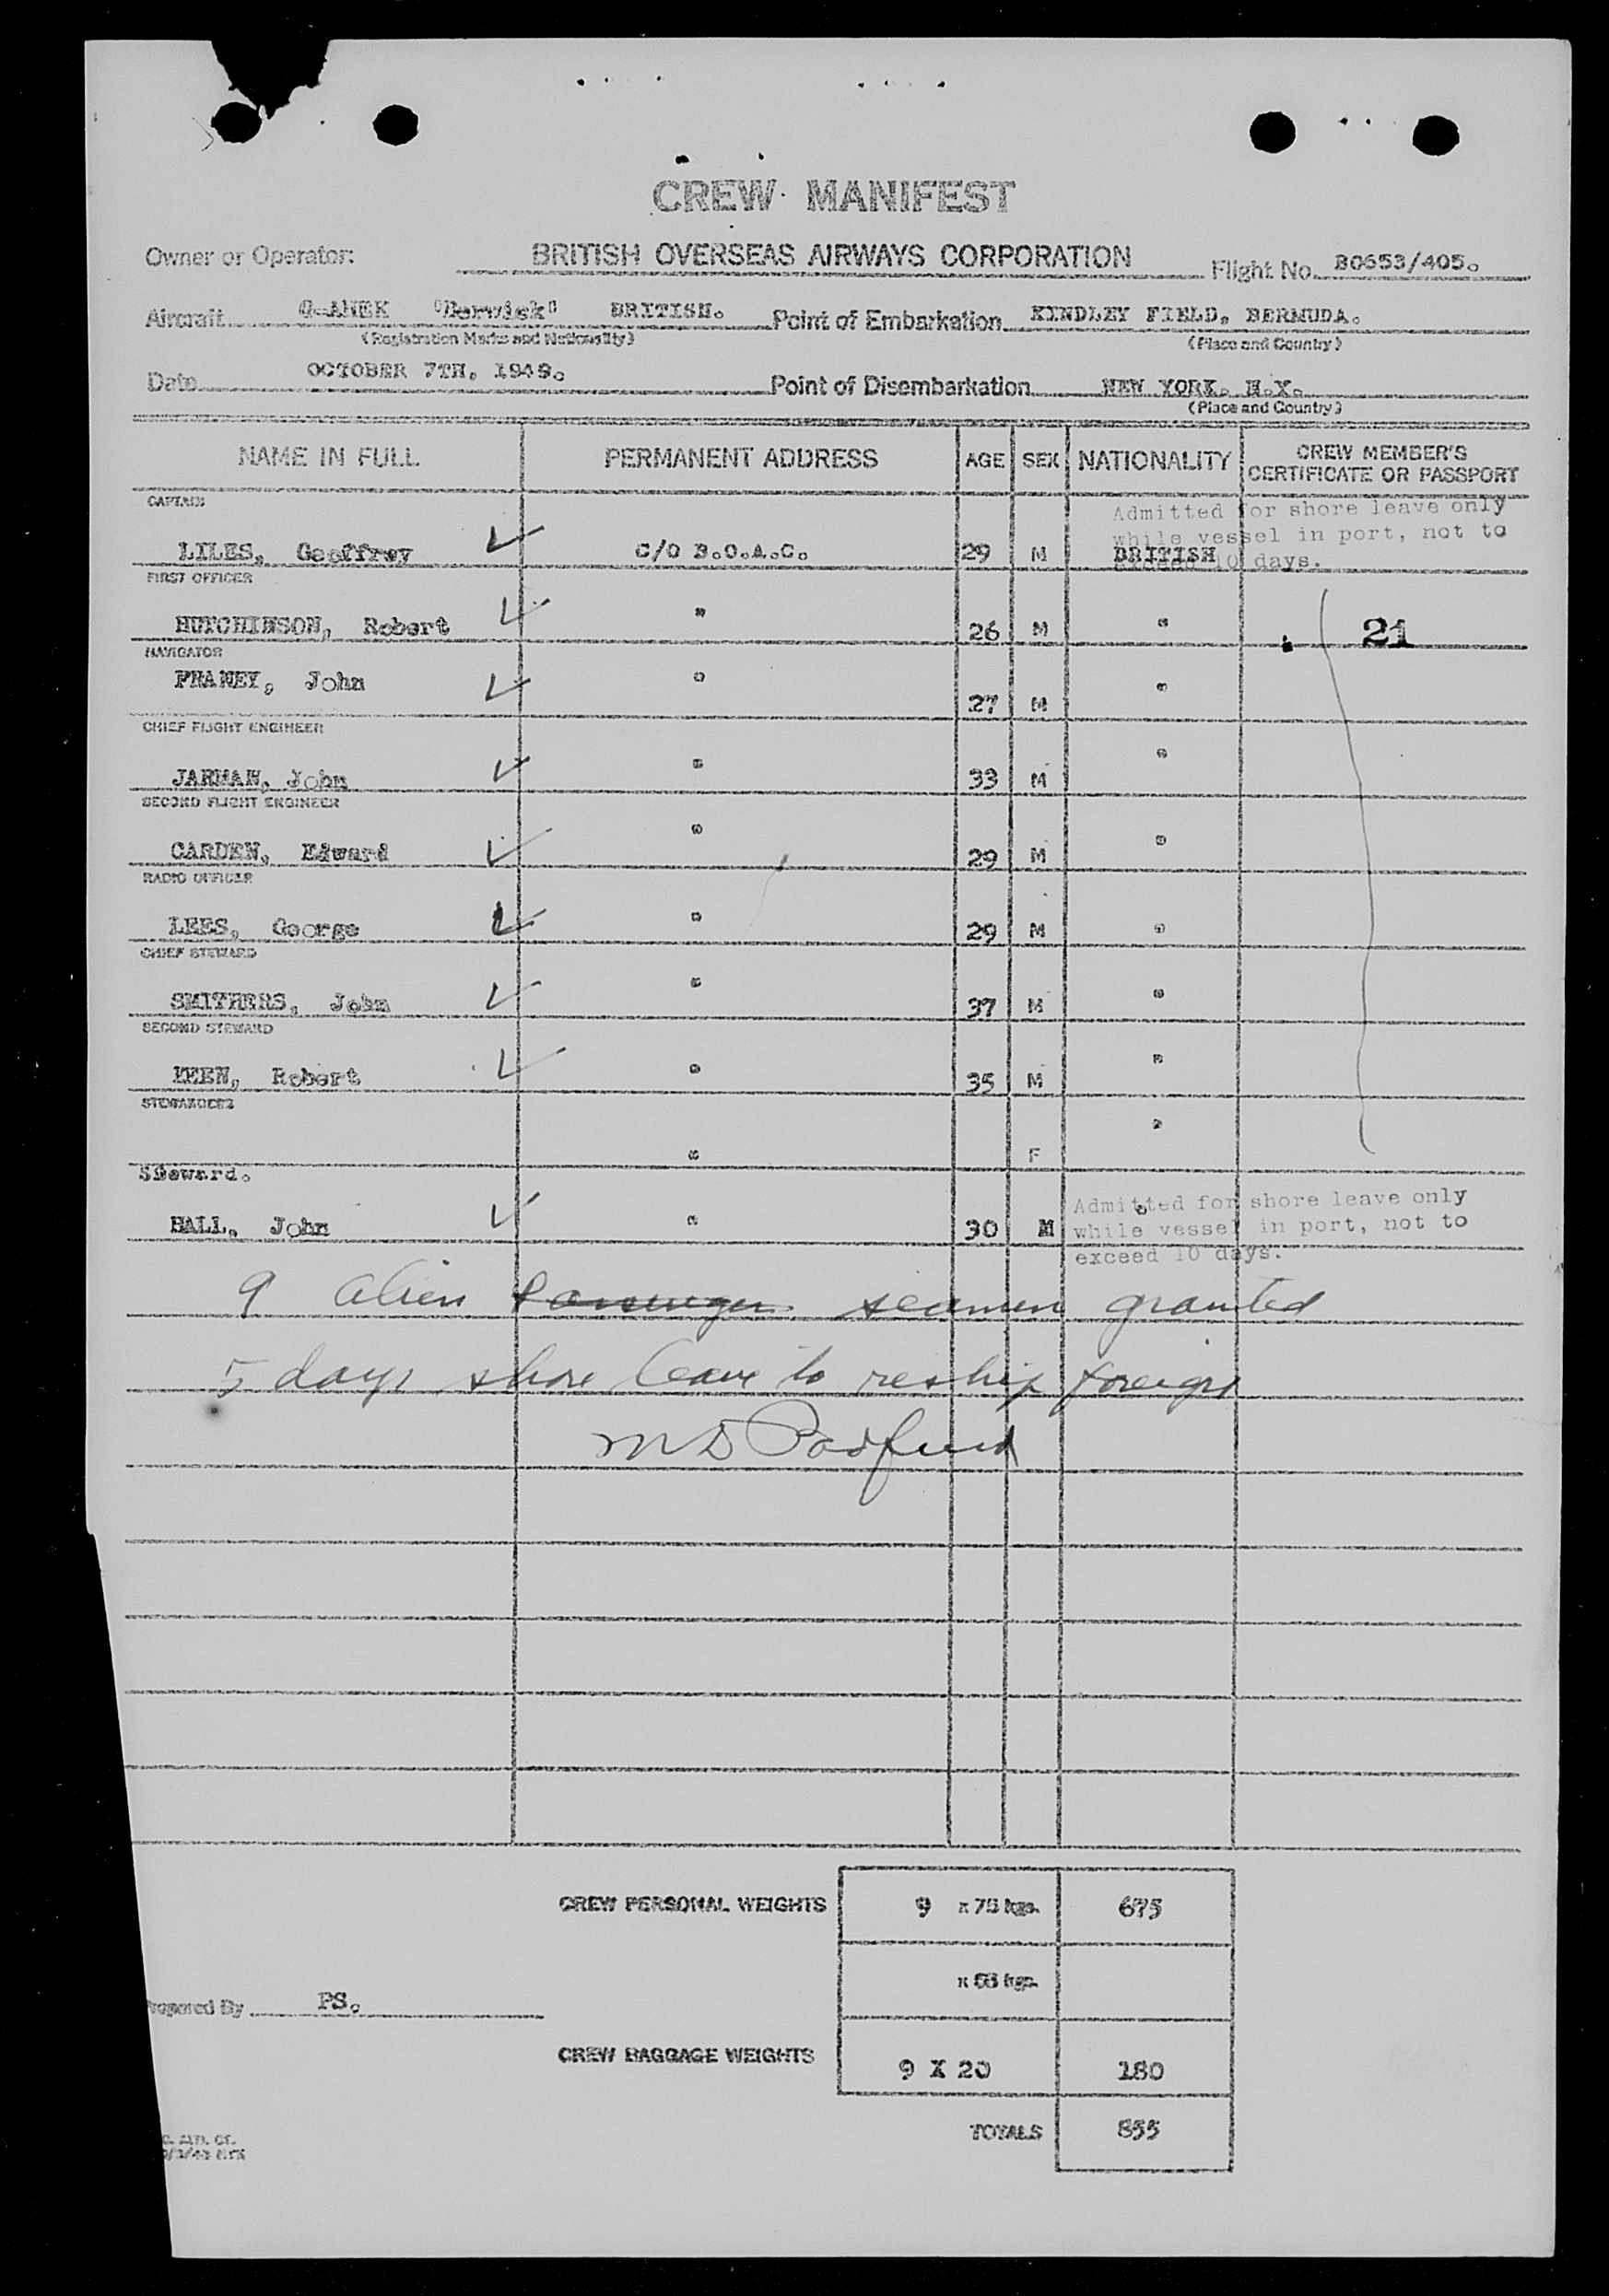 CREW MANIFEST
Owner or Operator: BRITISH OVERSEAS AIRWAYS CORPORATION Flight No. BO653/405.
Aircraft G-AHEK "Berwick" BRITISH. Point of Embarkation KINDLEY FIELD, BERMUDA.
(Registration Marks and Nationality) (Place and Country)
Date OCTOBER 7TH. 1949. Point of Disembarkation NEW YORK. N.Y.
(Place and Country)
NAME IN FULL PERMANENT ADDRESS AGE SEX NATIONALITY CREW MEMBER'S CERTIFICATE OR PASSPORT
CAPTAIN
Admitted for shore leave only
while vessel in port, not to
exceed 10 days.
LILES, Geoffrey C/O B.O.A.C. 29 M BRITISH
FIRST OFFICER
HUTCHINSON, Robert " 26 M " 21
NAVIGATOR
FRANEY, John " 27 M "
CHIEF FLIGHT ENGINEER
JARMAN, John " 33 M "
SECOND FLIGHT ENGINEER
CARDEN, Edward " 29 M "
RADIO OFFICER
LEES, George " 29 M "
CHIEF STEWARD
SMITHERS, John " 37 M "
SECOND STEWARD
KEEN, Robert " 35 M "
STEWARDESS
" F "
Steward.
HALL, John " 30 M "
Admitted for shore leave only
while vessel in port, not to
exceed 10 days.
9 alien passenger seamen granted
5 days shore leave to reship foreign
CREW PERSONAL WEIGHTS 9 x 75 kgs. 675
Prepared By PS.
CREW BAGGAGE WEIGHTS 9 X 20 180
TOTALS 855